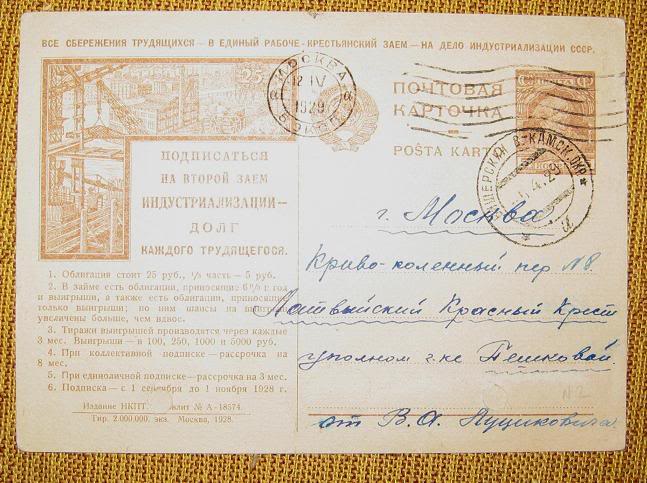 ВСЕ СБЕРЕЖЕНИЯ ТРУДЯЩИХСЯ – В ЕДИНЫЙ РАБОЧЕ-КРЕСТЬЯНСКИЙ ЗАЕМ – НА ДЕЛО ИНДУСТРИАЛИЗАЦИИ СССР.
25
МОСКВА
12 IV
1929
ПОЧТОВАЯ
КАРТОЧКА
POŠTA KARTO
ПОЧТА
В-КАМСК. ОКР.
4.29
ПОДПИСАТЬСЯ
НА ВТОРОЙ ЗАЕМ
ИНДУСТРИАЛИЗАЦИИ—
ДОЛГ
КАЖДОГО ТРУДЯЩЕГОСЯ.
1. Облигация стоит 25 руб., 1/5 часть — 5 руб.
2. В займе есть облигации, приносящие 6% год
и выигрыши, а также есть облигации, приносящие
только выигрыши; по ним шансы на выигрыш
увеличены больше, чем вдвое.
3. Тиражи выигрышей производятся через каждые
3 мес. Выигрыши — в 100, 250, 1000 и 5000 руб.
4. При коллективной подписке — рассрочка на
8 мес.
5. При единоличной подписке — рассрочка на 3 мес.
6. Подписка — с 1 сентября до 1 ноября 1928 г.
Издание НКПТ. лит № А-18574.
Тир. 2.000.000. экз. Москва, 1928.
г. Москва
Криво-коленный пер № 8.
Красный Крест
уполном г-ке Пешковой
от В. А. Пуциковича
№2